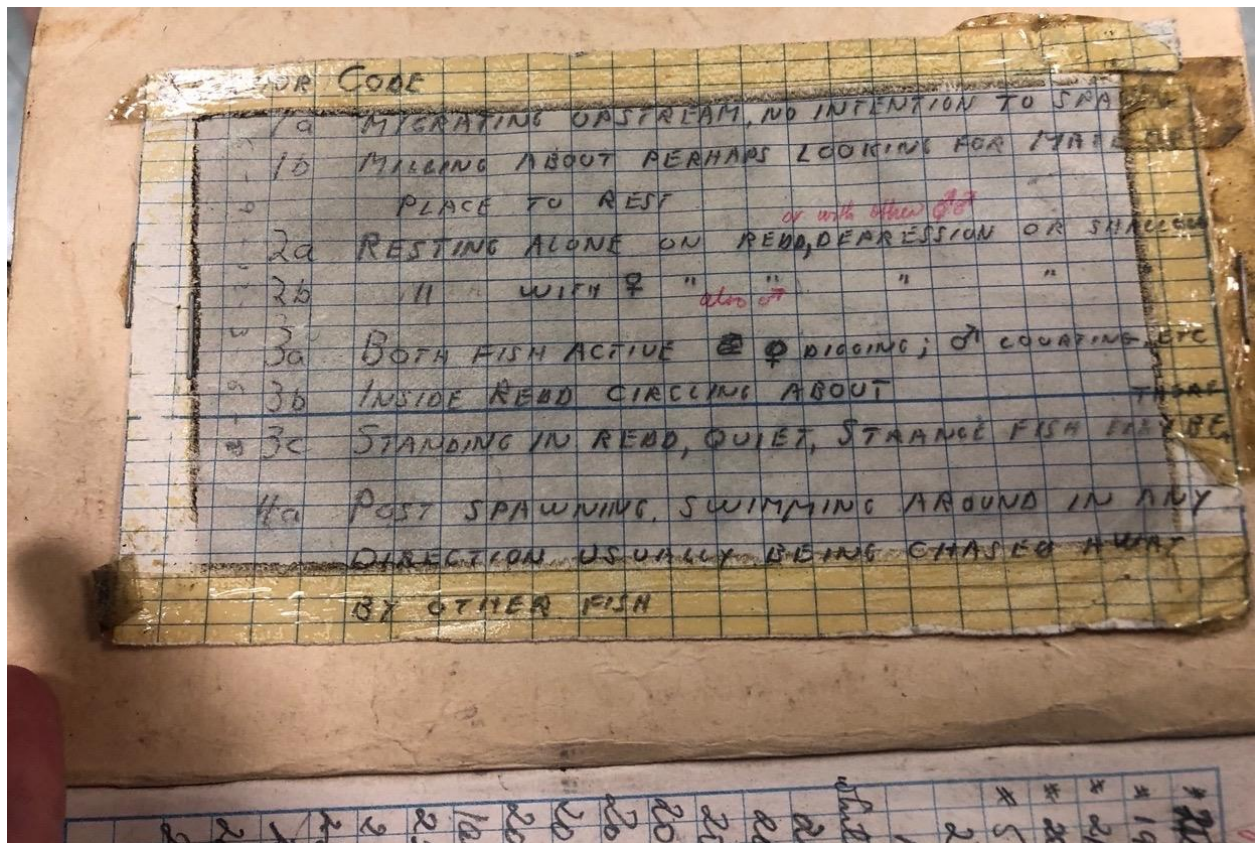 CODE
1a MIGRATING UPSTREAM, NO INTENTION TO
1b MILLING ABOUT PERHAPS LOOKING FOR
PLACE TO REST
or with other ♂♂
2a RESTING ALONE ON REDD, DEPRESSION OR SHALLOW
2b " WITH ♀ " " " "
also ♂
3a BOTH FISH ACTIVE ♀ DIGGING; ♂ COURTING, ETC
3b INSIDE REDD CIRCLING ABOUT
3c STANDING IN REDD, QUIET, STRANGE FISH BE
4a POST SPAWNING, SWIMMING AROUND IN ANY
DIRECTION USUALLY BEING CHASED AWAY
BY OTHER FISH